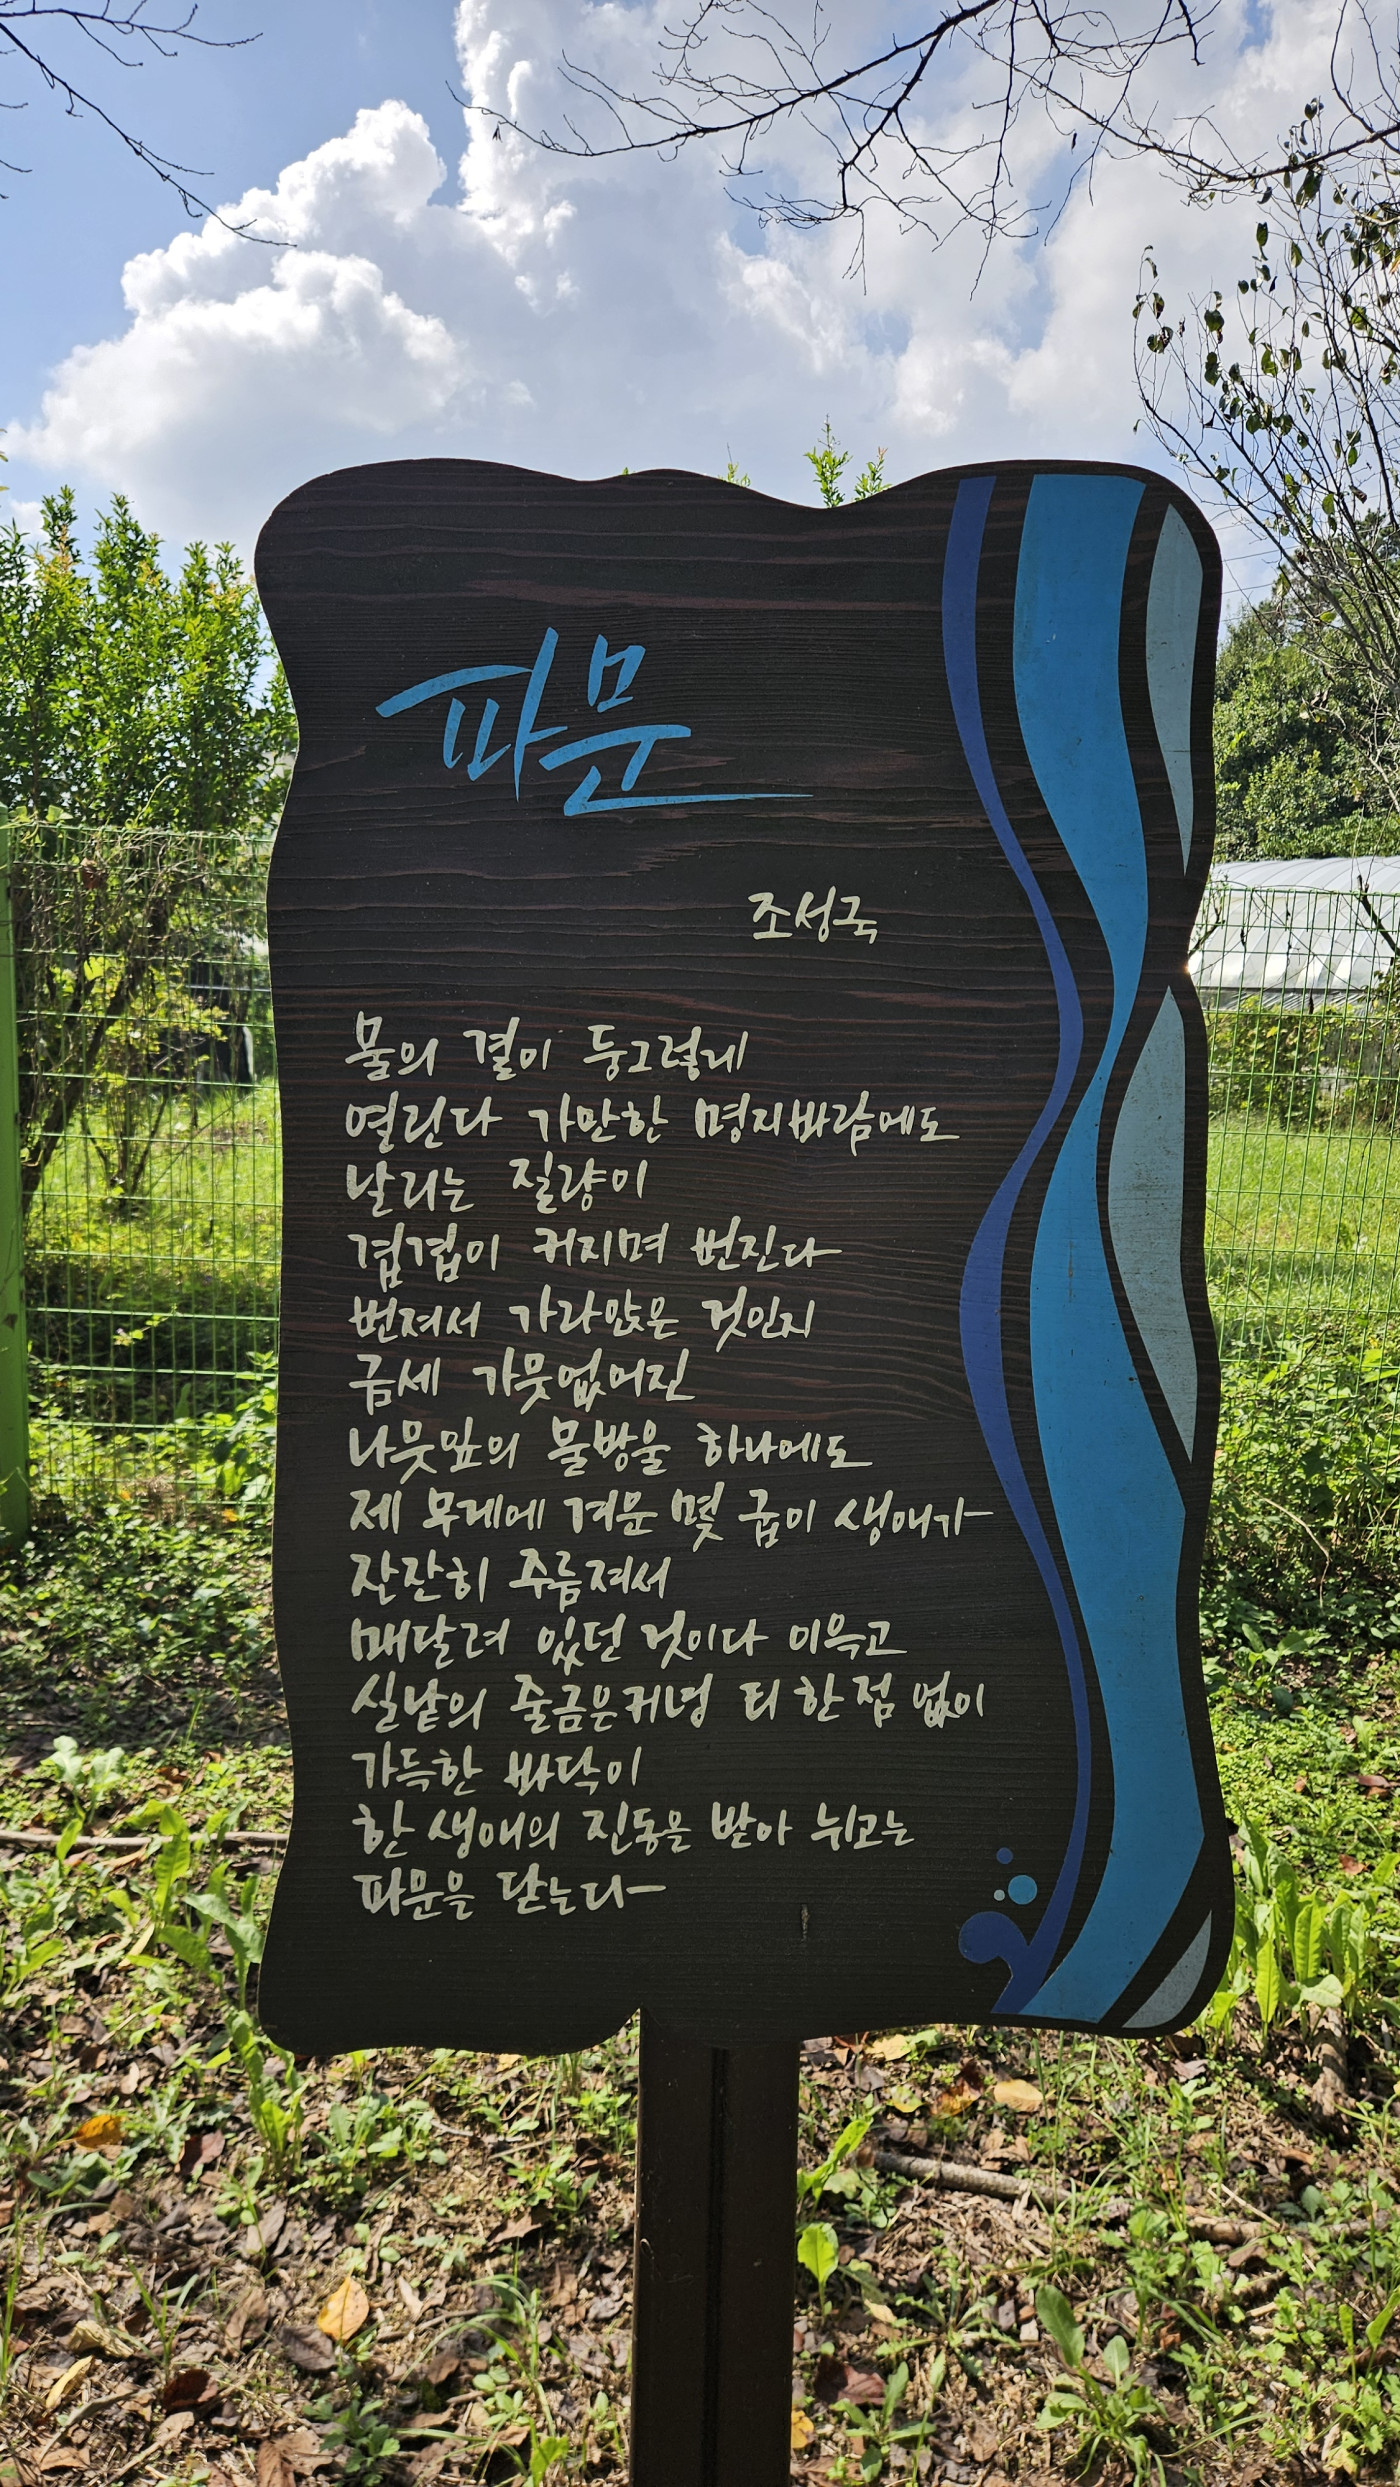 파문
조성국
물의 결이 둥그렇게
열린다 가만한 명지바람에도
날리는 질량이
겹겹이 커지며 번진다
번져서 가라앉은 것인지
금세 가뭇없어진
나뭇잎의 물방울 하나에도
제 무게에 겨운 몇 굽이 생애가
잔잔히 주름져서
매달려 있던 것이다 이윽고
실낱의 줄금은커녕 티 한 점 없이
가득한 바닥이
한 생애의 진동을 받아 뉘고는
파문을 닫는다